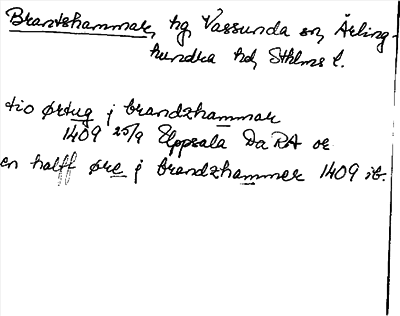 Brantshammar, hg Vassunda sn, Ärling-
hundra hd, Sthlms l.
tio ørtug j brandzhammar
1409 25/9 Uppsala Da RA or
en halff øre j brandzhammer 1409 ib.